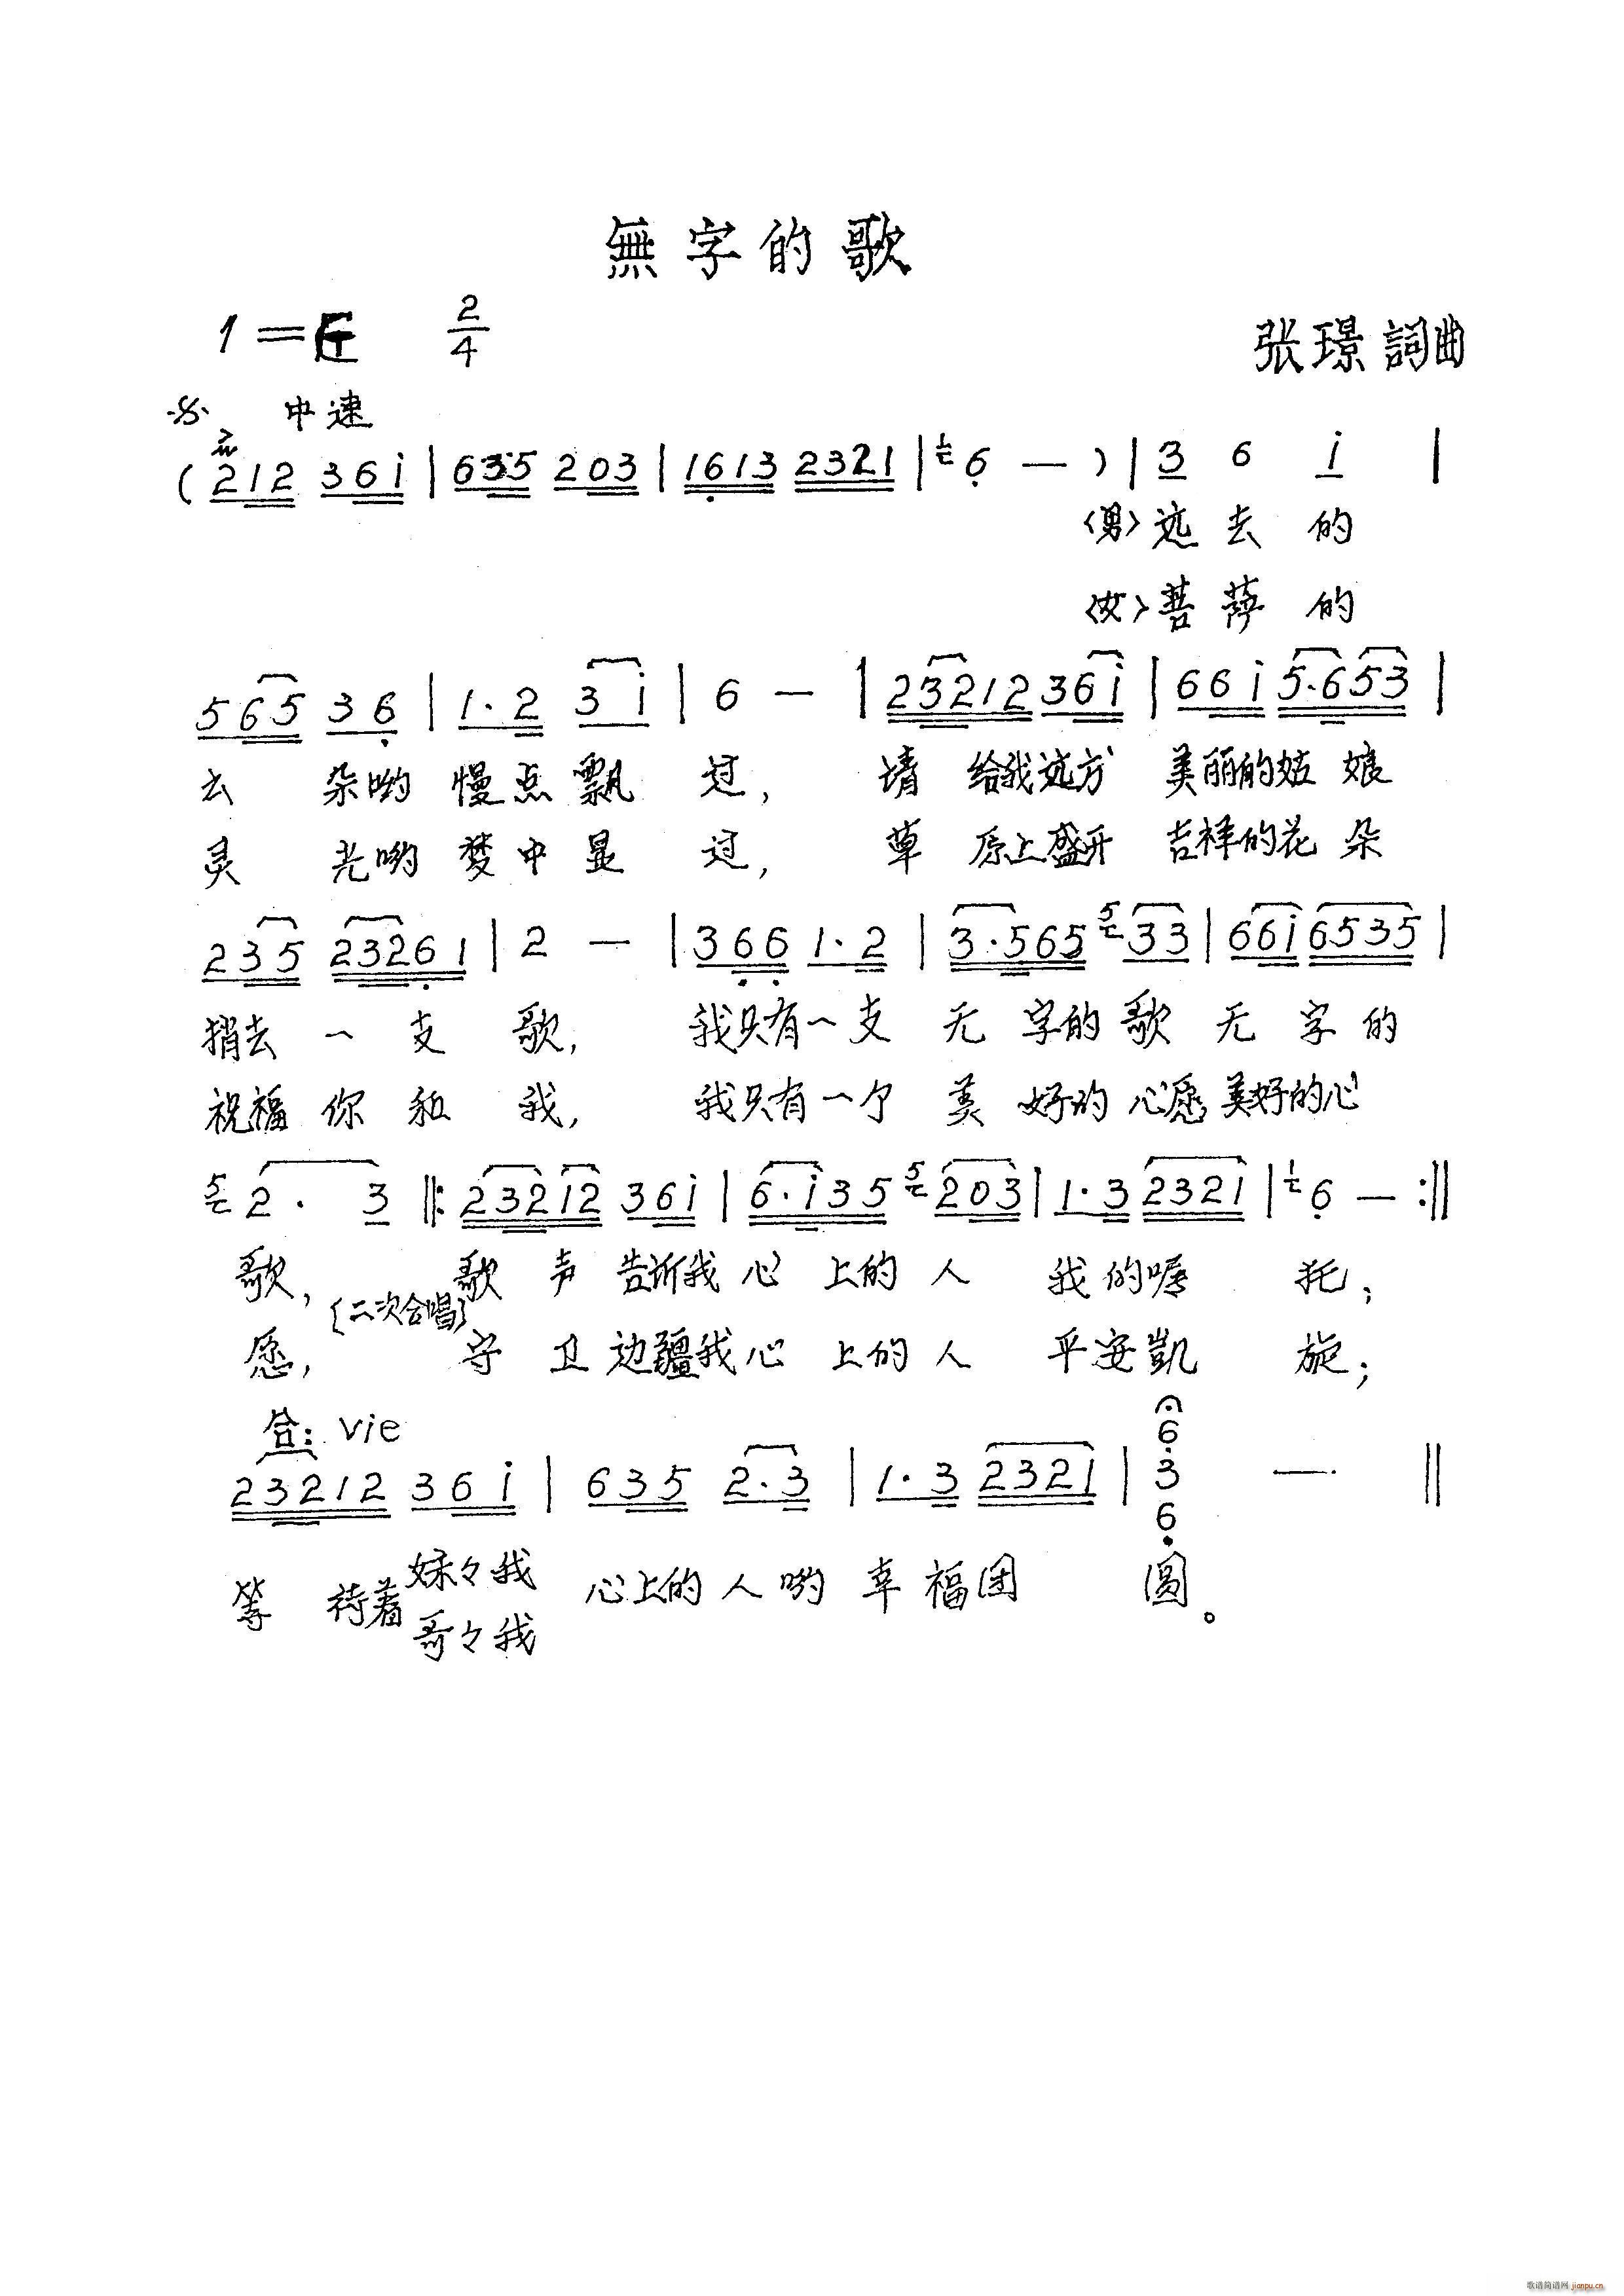 無字的歌
1= 2/4
张璟詞曲
中速
(212 36i | 635 203 | 1613 2321 | 6 — ) | 3 6 i |
〈男〉远去的
〈女〉菩萨的
565 36 | 1·2 3i | 6 — | 23212 36i | 66i 5·653 |
云 朵哟 慢点飘 过, 请 给我远方 美丽的姑 娘
灵 光哟 梦中显 过, 草 原上盛开 吉祥的花 朵
235 23261 | 2 — | 366 1·2 | 3·565 5 33 | 66i 6535 |
捎去 一 支 歌, 我只有一支 无 字的歌 无 字的
祝福 你 和 我, 我只有一个 美 好的 心愿 美好的心
5 2· 3 ‖: 23212 36i | 6·i35 5 203 | 1·3 2321 | 1 6 — :‖
歌, 歌 声 告诉我 心 上的 人 我的嘱 托;
(二次合唱)
愿, 守 卫 边疆我 心 上的 人 平安凱 旋;
合: vie
23212 36i | 635 2·3 | 1·3 2321 | 6 3 6 — ‖
等 待着 妹々我 心上的人哟 幸福团 圆。
哥々我
歌谱简谱网 jianpu.cn